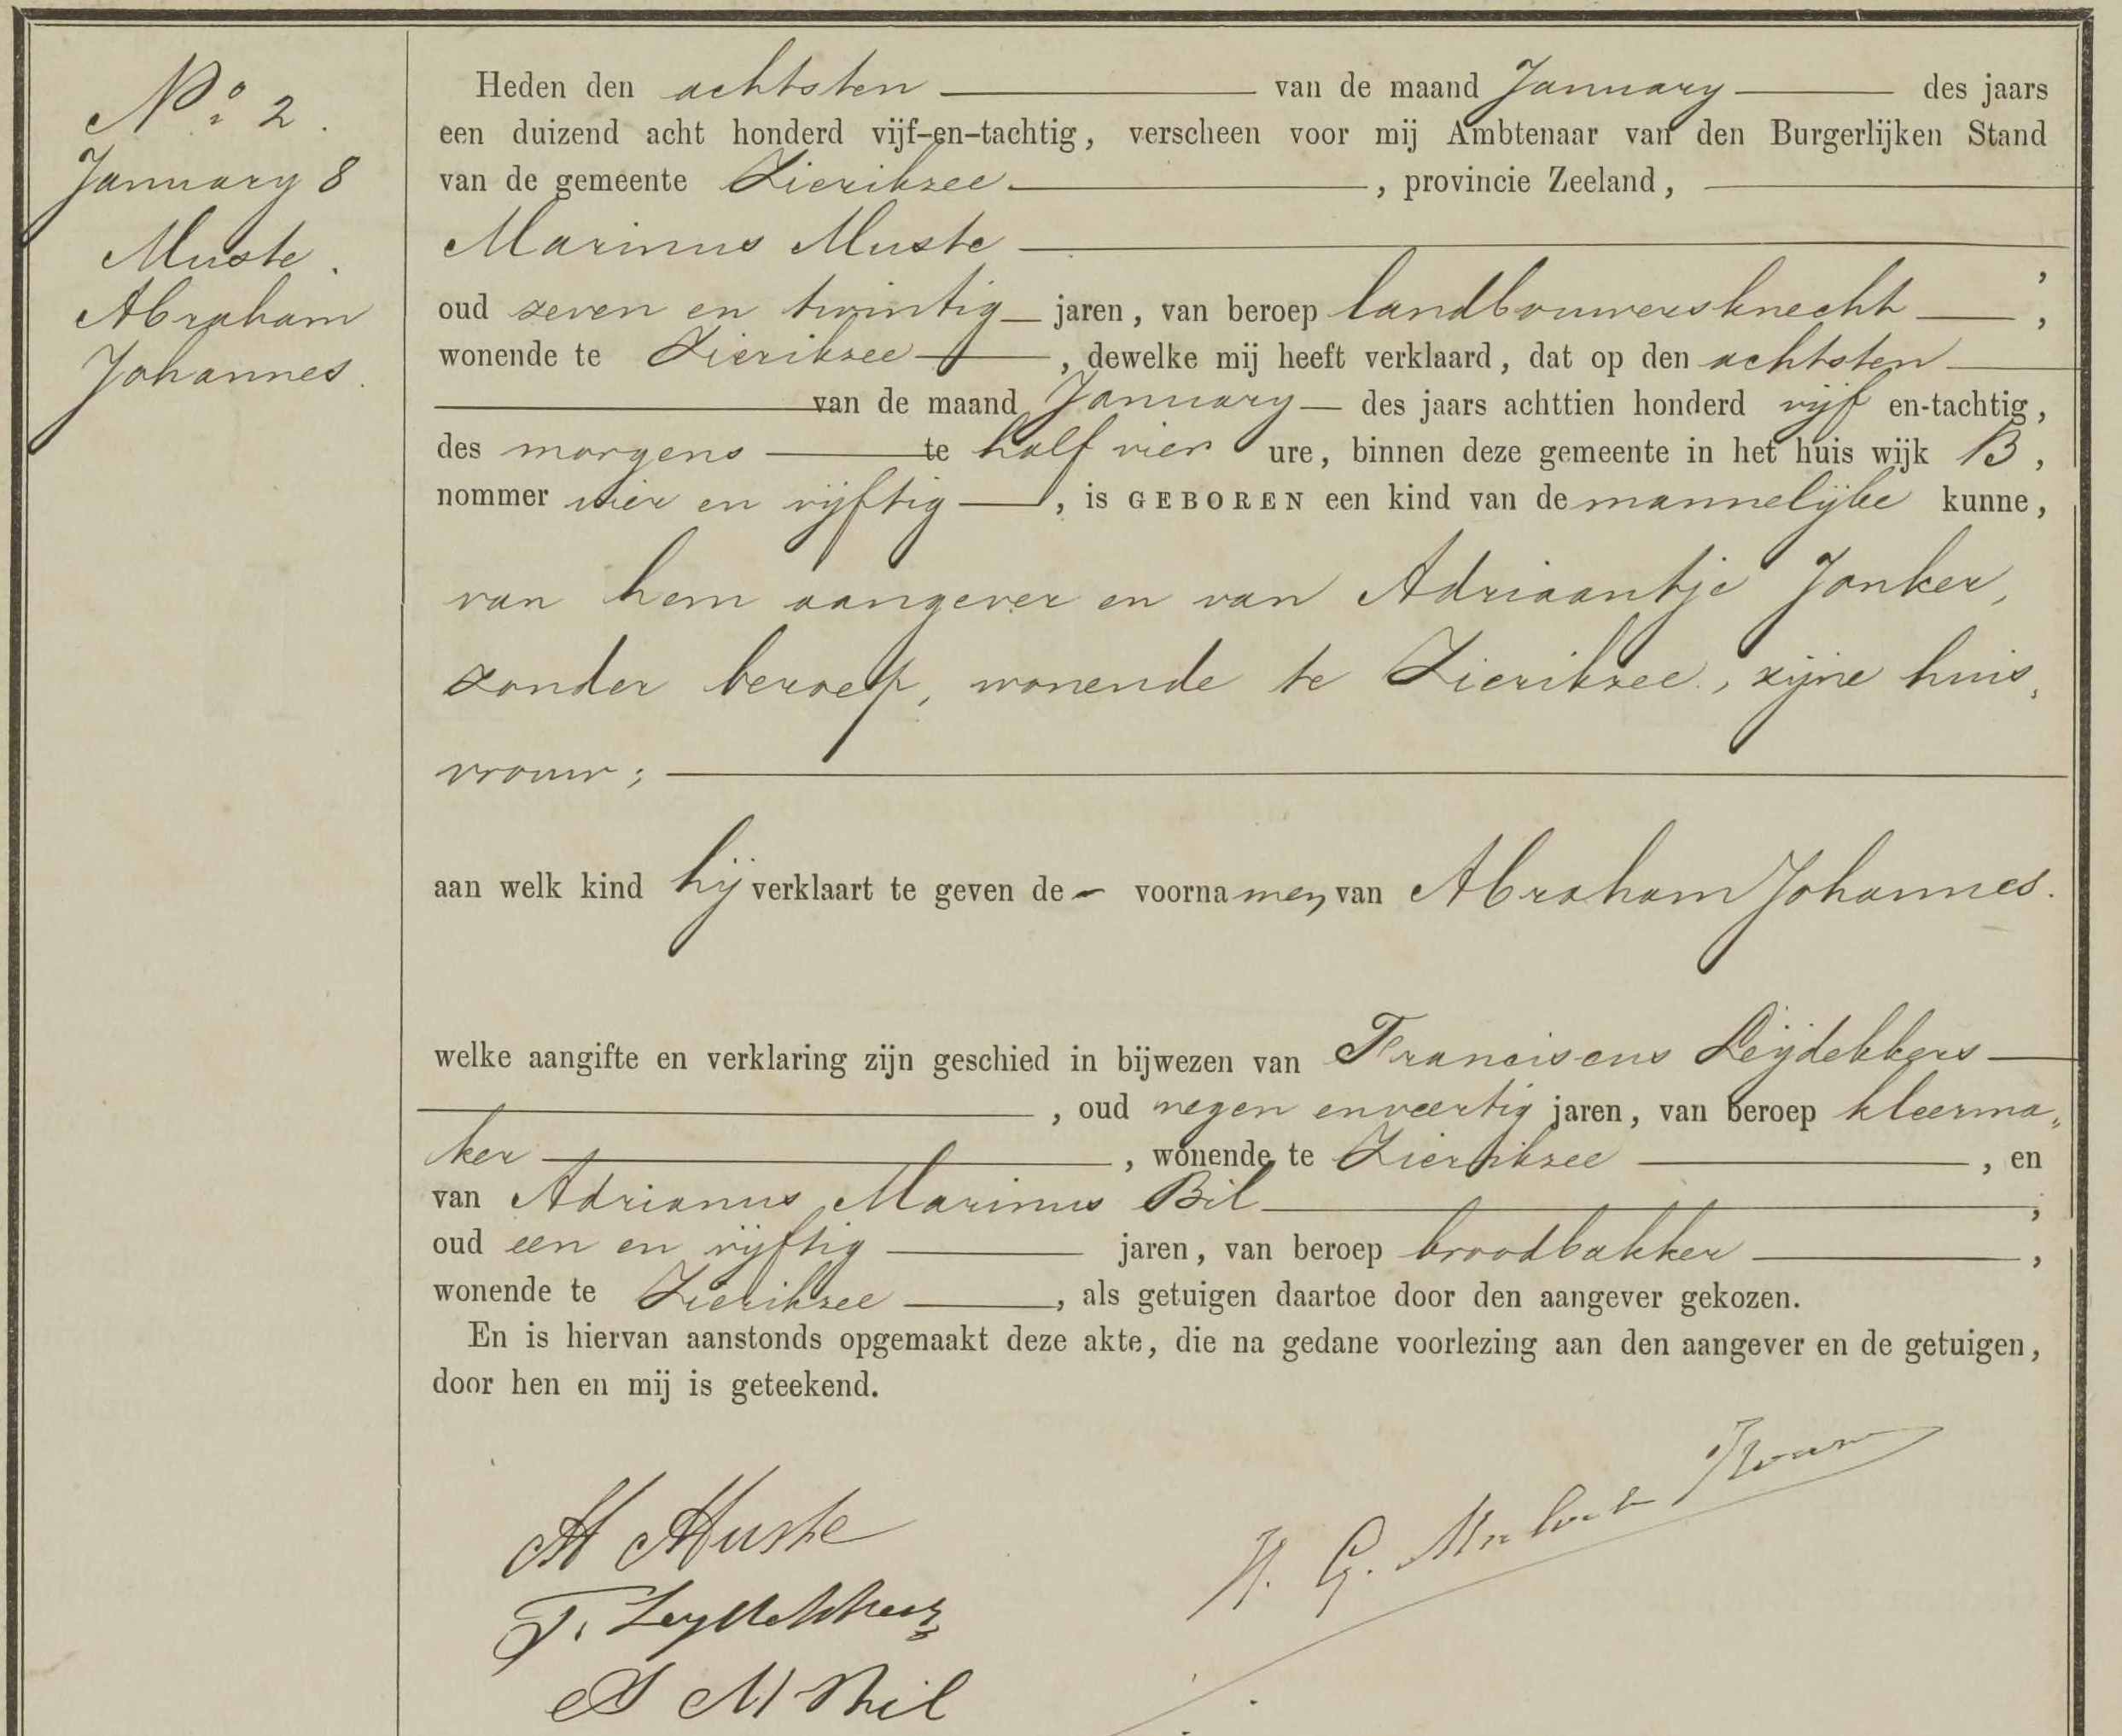 No. 2.
January 8
Muste.
Abraham
Johannes.
Heden den achtsten van de maand January des jaars
een duizend acht honderd vijf-en-tachtig, verscheen voor mij Ambtenaar van den Burgerlijken Stand
van de gemeente Zierikzee, provincie Zeeland,
Marinus Muste,
oud zeven en twintig jaren, van beroep landbouwersknecht,
wonende te Zierikzee, dewelke mij heeft verklaard, dat op den achtsten
van de maand January des jaars achttien honderd vijf en-tachtig,
des morgens te half vier ure, binnen deze gemeente in het huis wijk B,
nommer vier en vijftig, is GEBOREN een kind van de mannelijke kunne,
van hem aangever en van Adriaantje Jonker,
zonder beroep, wonende te Zierikzee, zijne huis„
vrouw;
aan welk kind hij verklaart te geven de voornamen van Abraham Johannes.
welke aangifte en verklaring zijn geschied in bijwezen van Franciscus Leijdekkers
, oud negen en veertig jaren, van beroep kleerma„
ker, wonende te Zierikzee, en
van Adrianus Marinus Bil,
oud een en vijftig jaren, van beroep broodbakker,
wonende te Zierikzee, als getuigen daartoe door den aangever gekozen.
En is hiervan aanstonds opgemaakt deze akte, die na gedane voorlezing aan den aangever en de getuigen,
door hen en mij is geteekend.
M Muste
F. Leydekkers
A M Bil